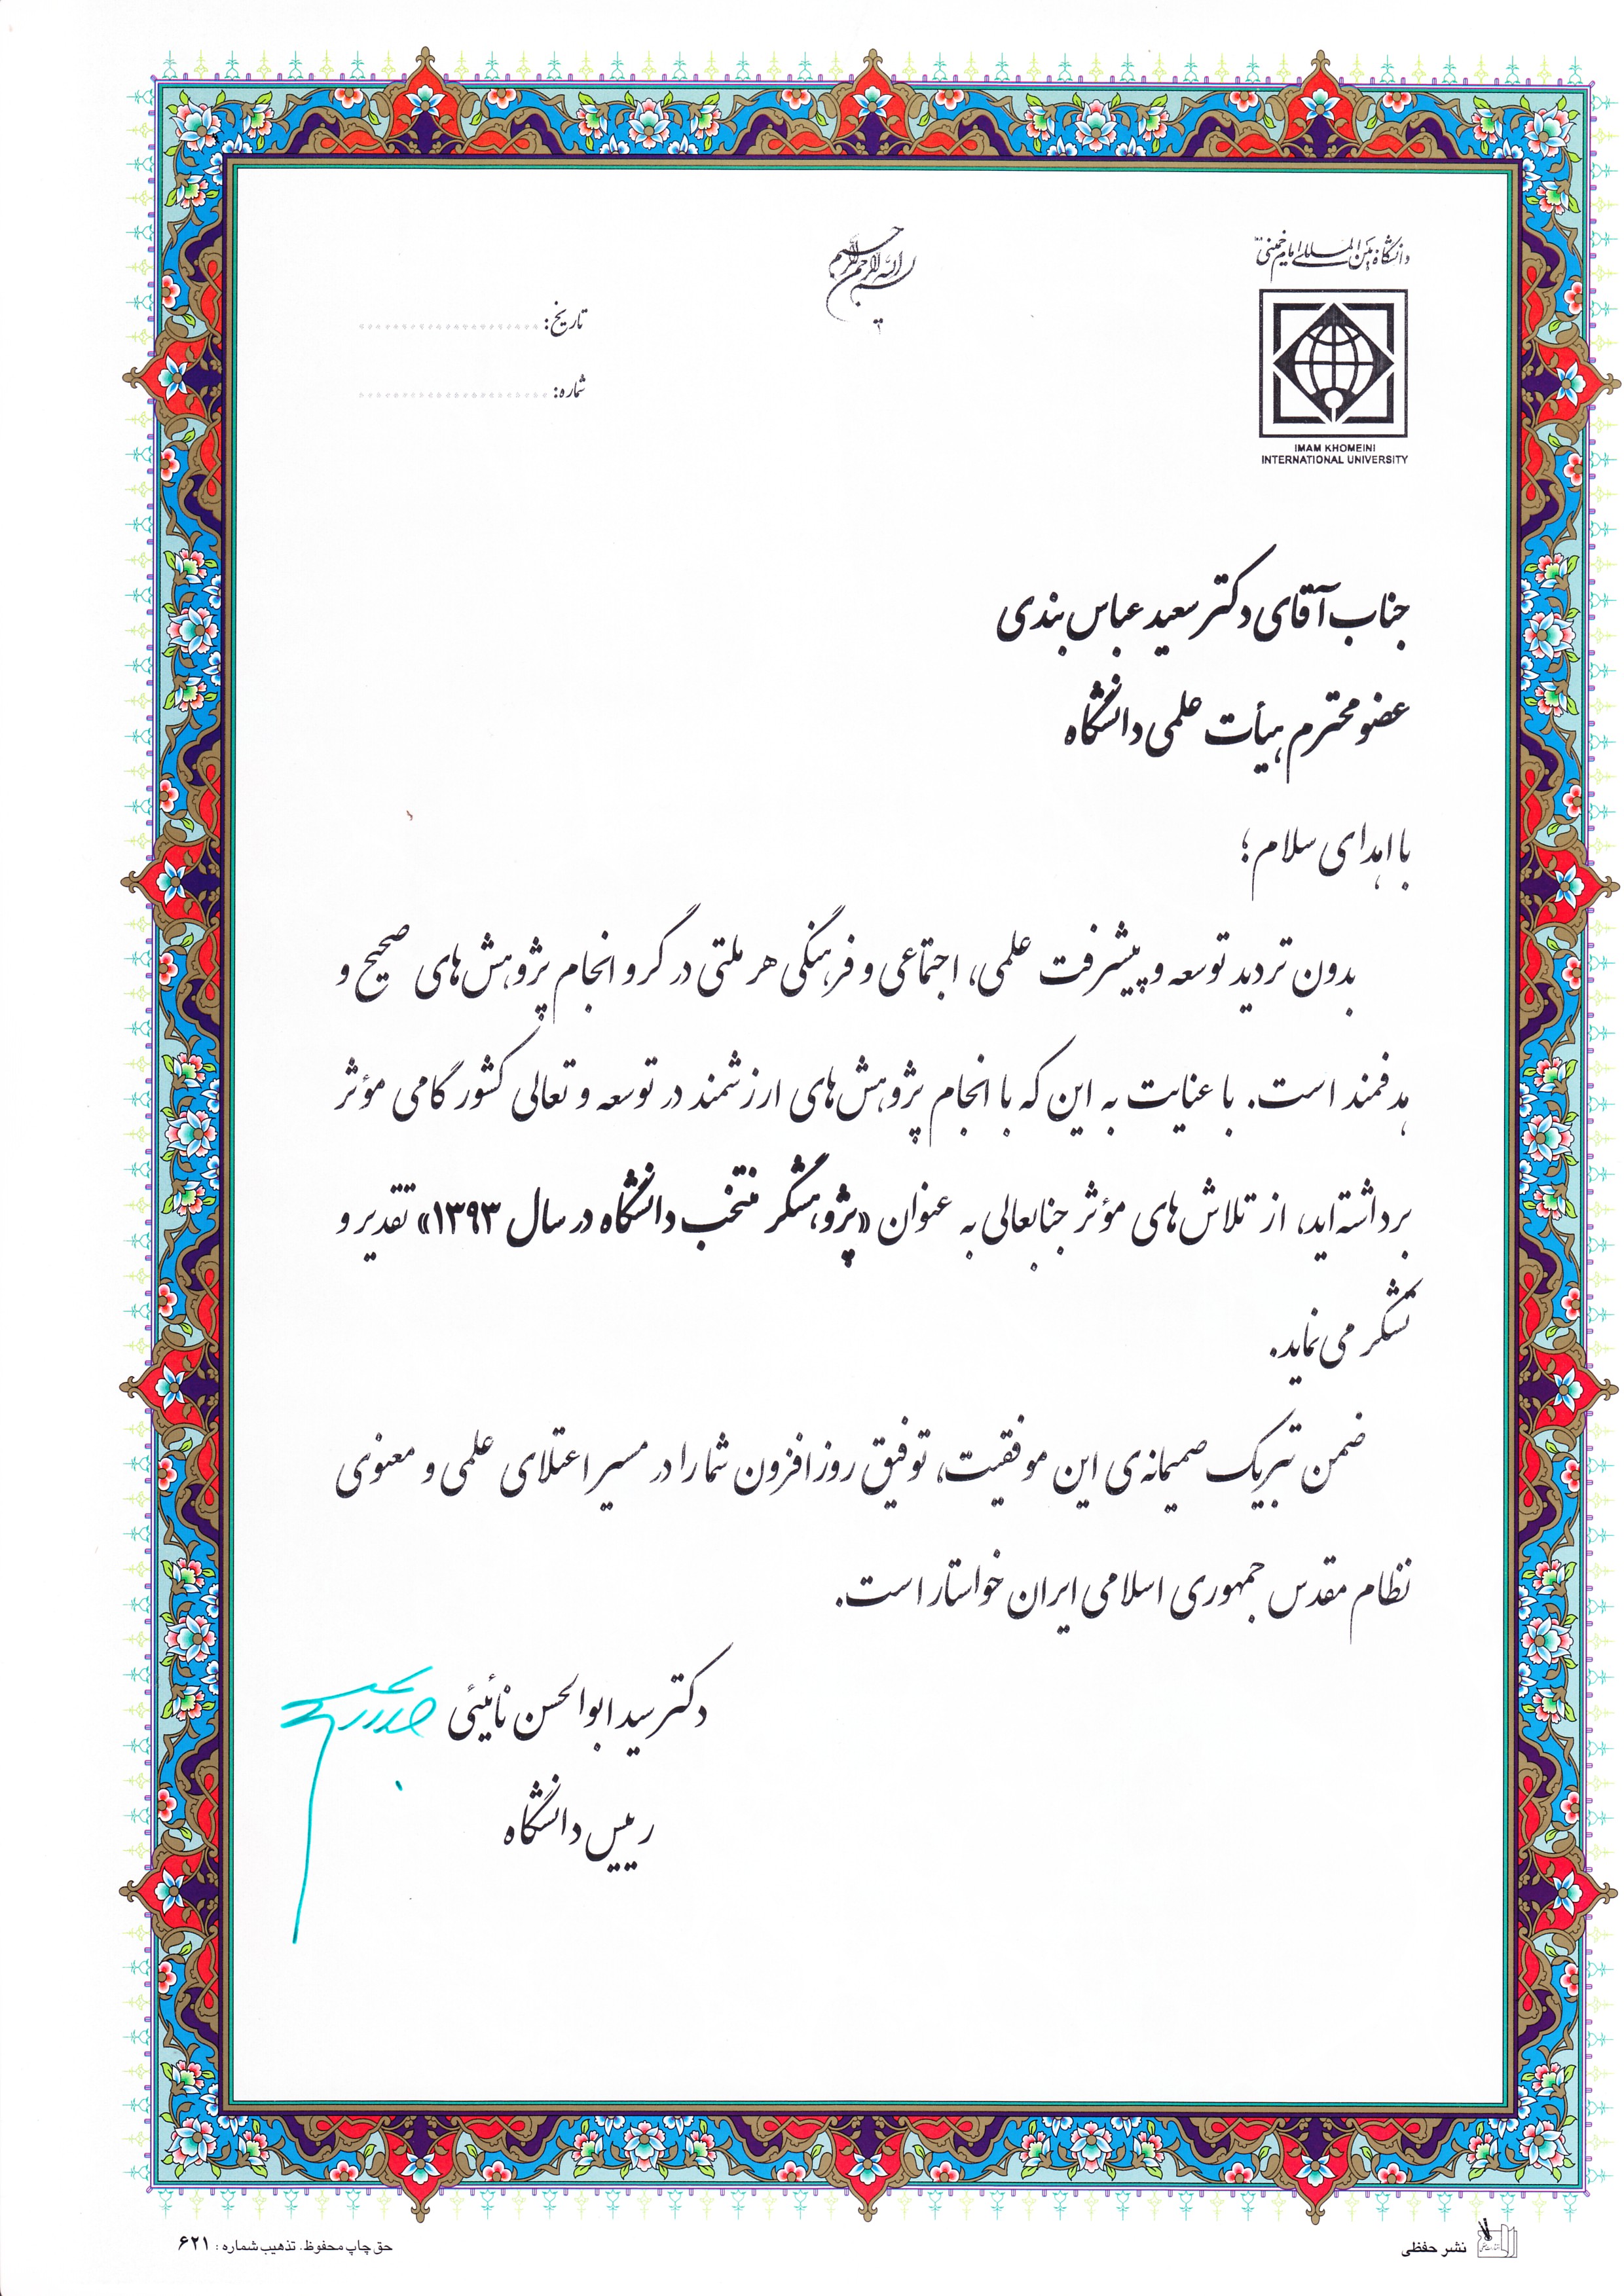 دانشگاه بین المللی امام خمینی
بسم الله الرحمن الرحیم
تاریخ: ......................
شماره: ......................
IMAM KHOMEINI
INTERNATIONAL UNIVERSITY
جناب آقای دکتر سعید عباس بندی
عضو محترم هیأت علمی دانشگاه
با اهدای سلام؛
بدون تردید توسعه و پیشرفت علمی، اجتماعی و فرهنگی هر ملتی در گرو انجام پژوهش‌های صحیح و
هدفمند است. با عنایت به این که با انجام پژوهش‌های ارزشمند در توسعه و تعالی کشور گامی مؤثر
برداشته‌اید، از تلاش‌های مؤثر جنابعالی به عنوان «پژوهشگر منتخب دانشگاه در سال ۱۳۹۳» تقدیر و
تشکر می‌نماید.
ضمن تبریک صمیمانه‌ی این موفقیت، توفیق روزافزون شما را در مسیر اعتلای علمی و معنوی
نظام مقدس جمهوری اسلامی ایران خواستار است.
دکتر سید ابوالحسن نائینی
رییس دانشگاه
نشر حفظی
حق چاپ محفوظ. تذهیب شماره : ۶۲۱